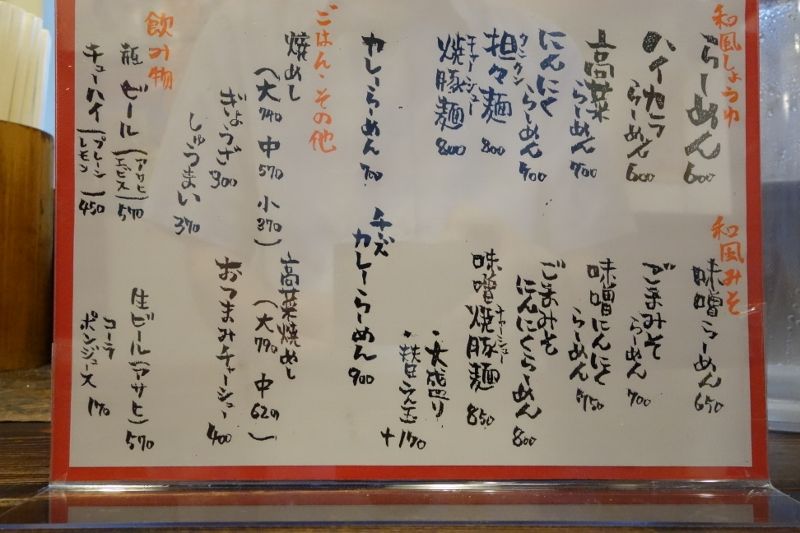 和風しょうゆ
らーめん 600
ハイカララーめん 600
高菜らーめん 700
にんにくらーめん 700
タンタン
担々麺 800
チャーシュー
焼豚麺 800
カレーらーめん 700
和風みそ
味噌らーめん 650
ごまみそらーめん 700
味噌にんにくらーめん 750
ごまみそにんにくらーめん 800
チャーシュー
味噌焼豚麺 850
・大盛り
・替え玉
+170
チーズカレーらーめん 900
ごはん・その他
焼めし
(大740 中570 小370)
高菜焼めし
(大790 中620)
ぎょうざ 300
しゅうまい 370
おつまみチャーシュー 400
飲み物
瓶ビール(アサヒ エビス) 570
チューハイ(プレーン レモン) 450
生ビール(アサヒ) 570
コーラ
ポンジュース 170